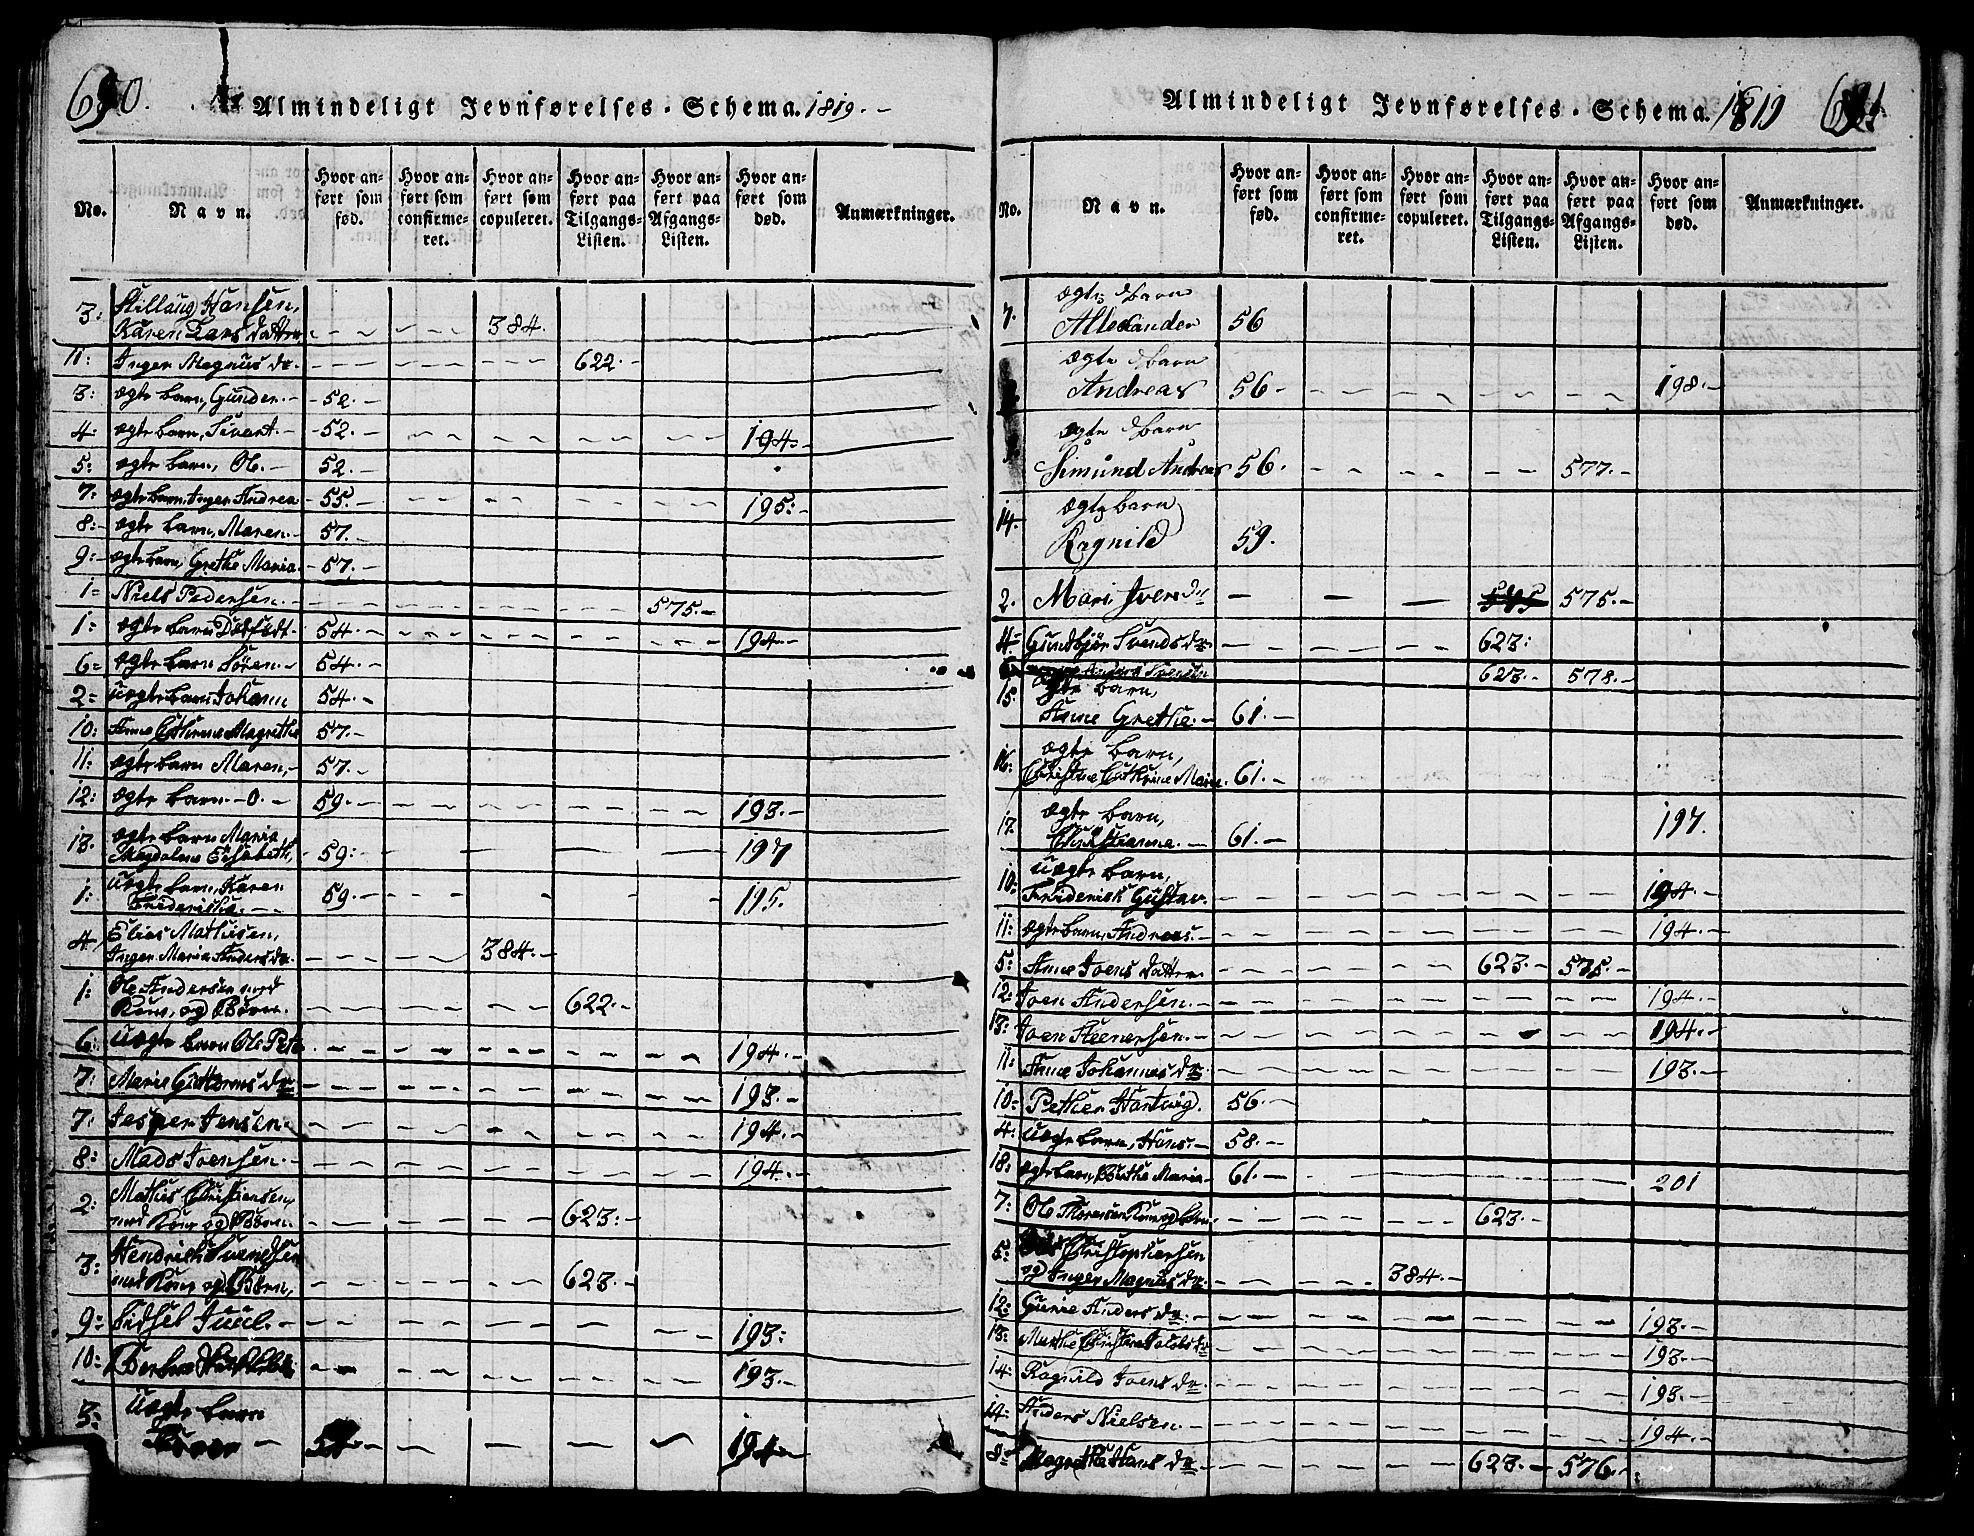 Almindeligt Jevnførelses-Schema. 1819.
No.
Navn.
Hvor an-
ført som
fød.
Hvor an-
ført som
confirme-
ret.
Hvor an-
ført som
copuleret.
Hvor an-
ført paa
Tilgangs-
Listen.
Hvor an-
ført paa
Afgangs-
Listen.
Hvor an-
ført som
død.
Anmærkninger.
3: Hansen,
Karen Lars datter 384.
11: Inger Magnus dr. 622.
3: ægte barn, Gunder. 52.
4: ægte barn, Sivert. 52. 194.
5: ægte barn, Ole. 52.
7: ægte barn, Inger Andrea 55. 195:
8: ægte barn, Maren. 57.
9: ægte barn, Grethe Maria. 57.
1 Niels Pedersen. 575.
1: ægte barn Dødfødt. 54. 194.
6 ægte barn Søren. 54.
2 uægte barn Johann 54.
10: Anne Cathrine Magrethe 57.
11: ægte barn Maren, 57.
12: ægte barn. O. 59. 193.
13. ægte barn Maria
Magdalene Elisabeth, 59: 197
1: uægte barn, Karen
Friderikke. 59. 195.
4 Elias Mathisen,
Inger Maria Anders dr. 384.
1: Ole Andersen med
Kone, og Børn. 622.
6: uægte barn Ole Peter 194.
7: Marie Guttorms dr 193.
7. Jesper Jensen. 194.
8: Mads Joensen. 194.
2: Mathis Christensen,
med Kone og Børn. 623:
3: Hendrich Svendsen
med Kone og Børn, 623.
9: Sidsel Juul. 193:
10: 193.
3: uægte barn
194
Almindeligt Jevnførelses-Schema. 1819
No.
Navn.
Hvor an-
ført som
fød.
Hvor an-
ført som
confirme-
ret.
Hvor an-
ført som
copuleret.
Hvor an-
ført paa
Tilgangs-
Listen.
Hvor an-
ført paa
Afgangs-
Listen.
Hvor an-
ført som
død.
Anmærkninger.
7. ægte Barn
Allexander 56
ægte Barn
Andreas 56 198.
ægte Barn
Simund Andreas 56. 577.
14. ægte barn
Ragnild 59.
2. Mari Ivers dr 575.
4 Gundbjør Svends dr. 623:
Anders Svends 623. 578.
15. ægte barn,
Anne Grethe. 61.
16. ægte barn,
Christine Cathrine Marie 61.
17. ægte barn,
Christianne. 61. 197.
10: uægte barn,
Friderisk Gustav. 194.
11: ægte barn, Andreas. 194.
5: Anne Joens datter 623. 575.
12: Joen Andersen. 194.
13: Joen Steenersen. 194.
11: Anne Johannes dr. 193.
10: Pether Hartvig. 56.
4: uægte barn, Hans. 58.
18. ægte barn, Berthe Maria 61. 201
7: Ole Thomesen, Kone og børn. 623.
5: Christophersen
og Inger Magnus dr. 384.
12: Gurie Anders dr. 193.
13: Marthe Christine Jacobs dr 193.
14: Ragnild Joens dr. 193.
14. Anders Nielsen. 194.
8 Magrethe Hans dr. 623. 576.